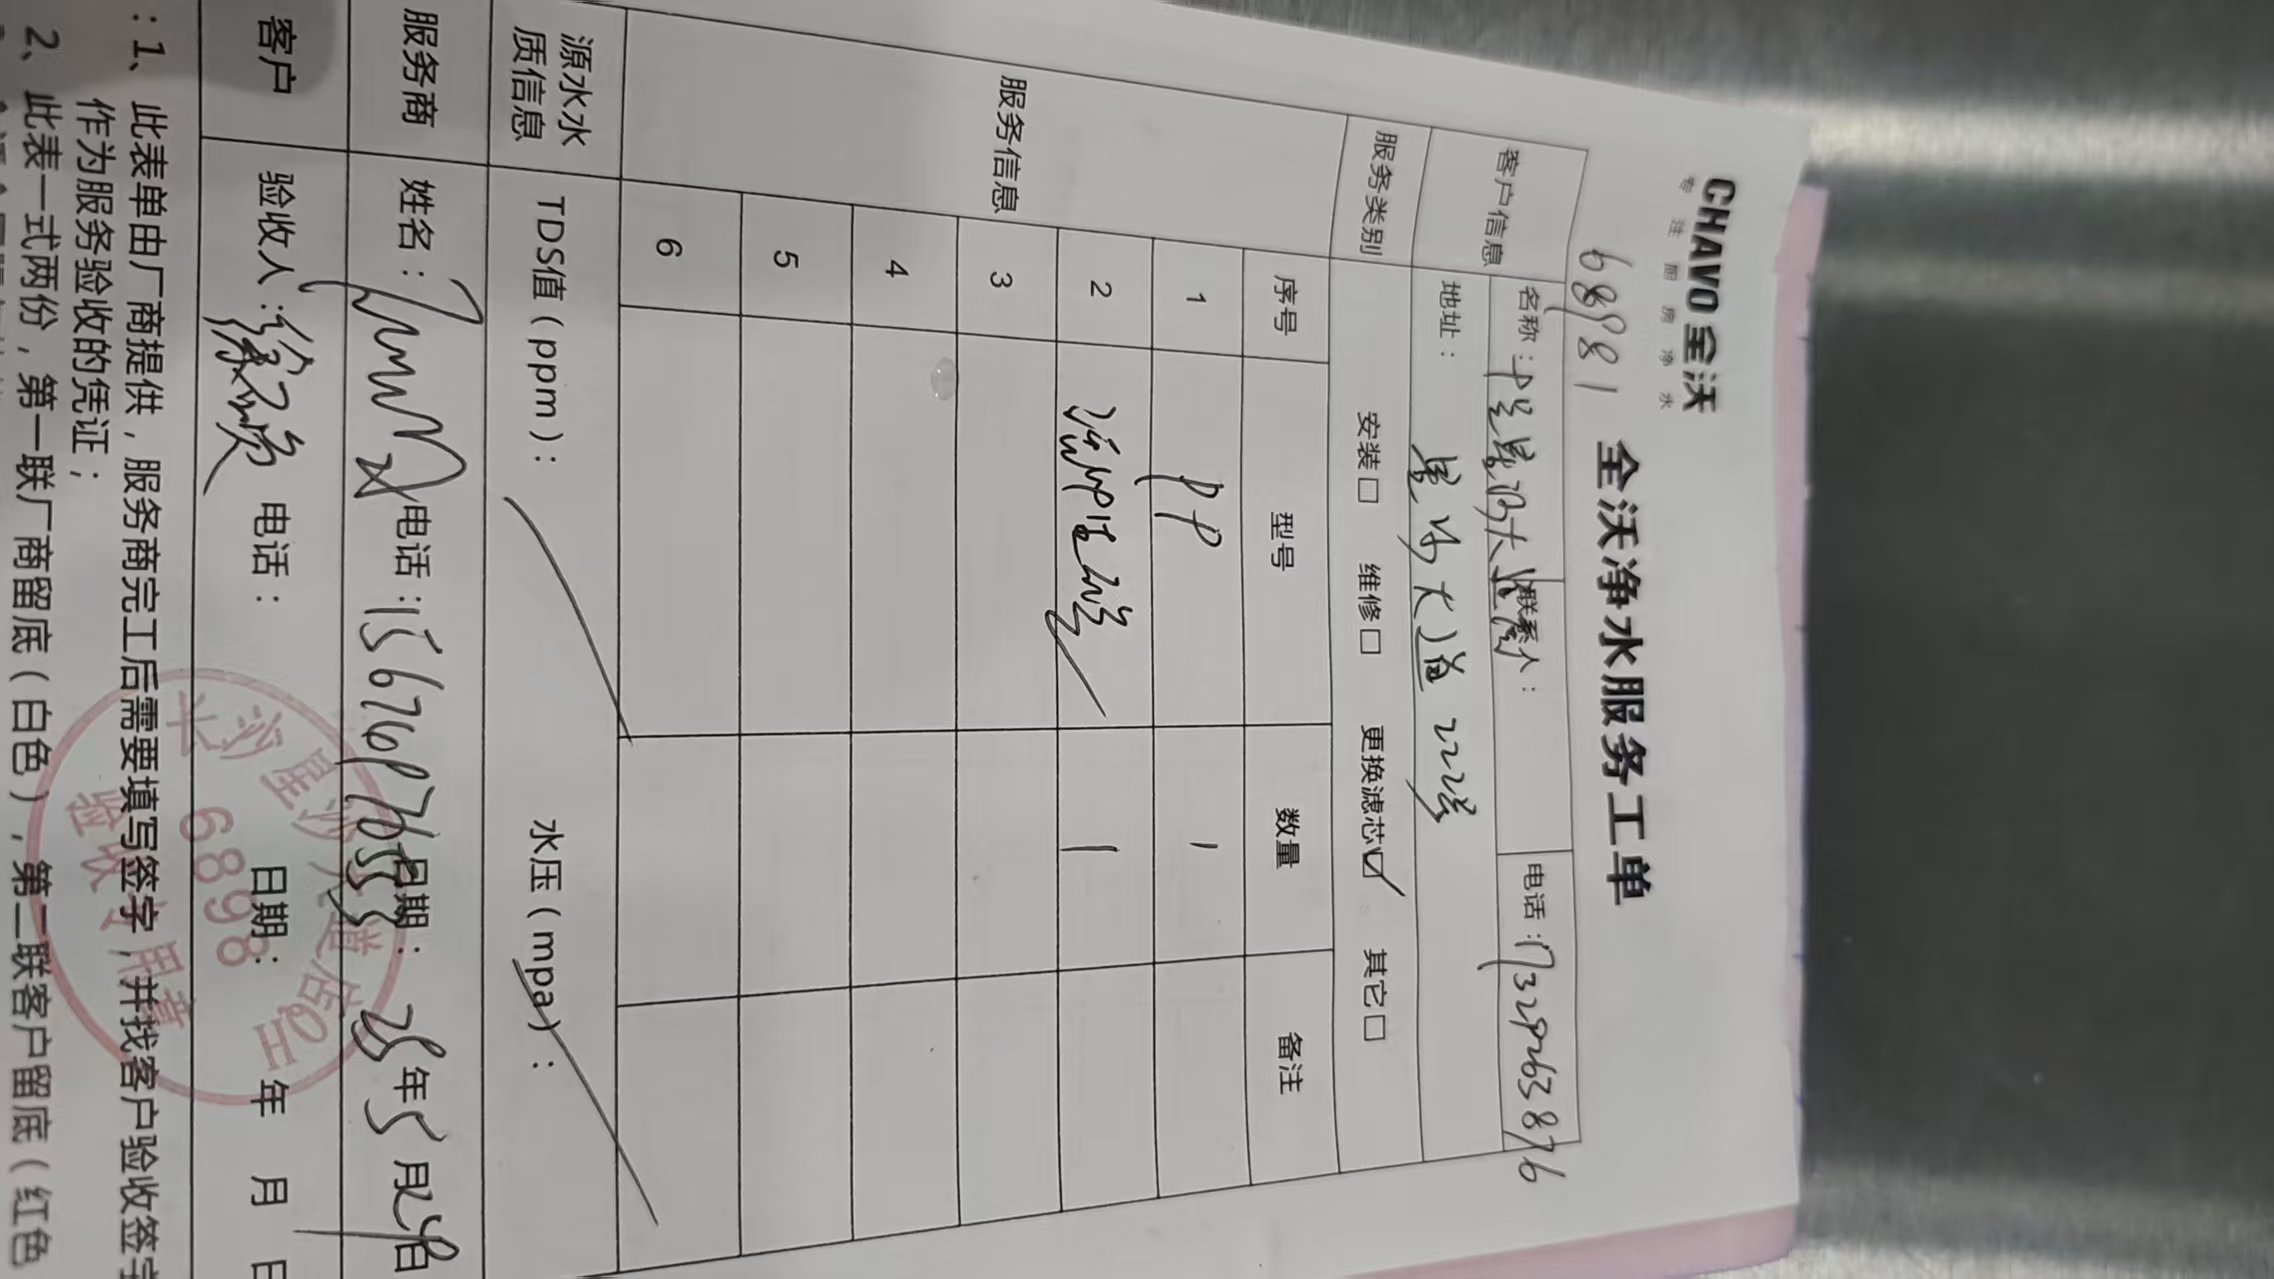 CHAVO 全沃
专注厨房净水
68981
全沃净水服务工单
客户信息 名称： 联系人： 电话：17329263876
地址：星沙大道222号
服务类别 安装□ 维修□ 更换滤芯☑ 其它□
服务信息 序号 型号 数量 备注
1 PP 1
2 1
3
4
5
6
源水水质信息 TDS值（ppm）： 水压（mpa）：
服务商 姓名： 电话： 日期：25年5月 日
客户 验收人：徐 电话： 日期： 年 月 日
长沙星沙大道店
6898
验收专用章
：1、此表单由厂商提供，服务商完工后需要填写签字，并找客户验收签字
作为服务验收的凭证；
2、此表一式两份，第一联厂商留底（白色），第二联客户留底（红色